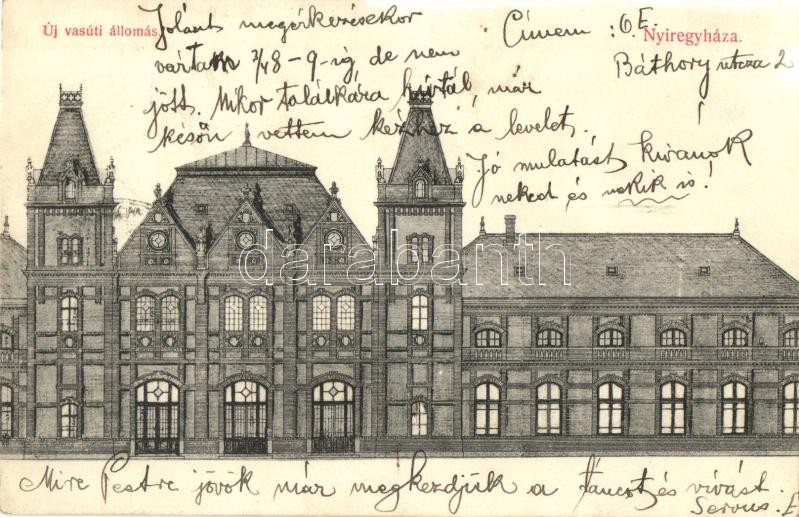 Új vasúti állomás.
Nyiregyháza.
Jolánt megérkezésekor
vártam 3/4 8-9-ig de nem
jött. Mikor találkára hívtál, már
későn vettem kézhez a levelet.
Címem: Ö.E.
Báthory utcza 2
Jó mulatást kivánok
neked és nekik is!
darabanth
Mire Pestre jövök már megkezdjük a táncot és vívást.
Servus. E